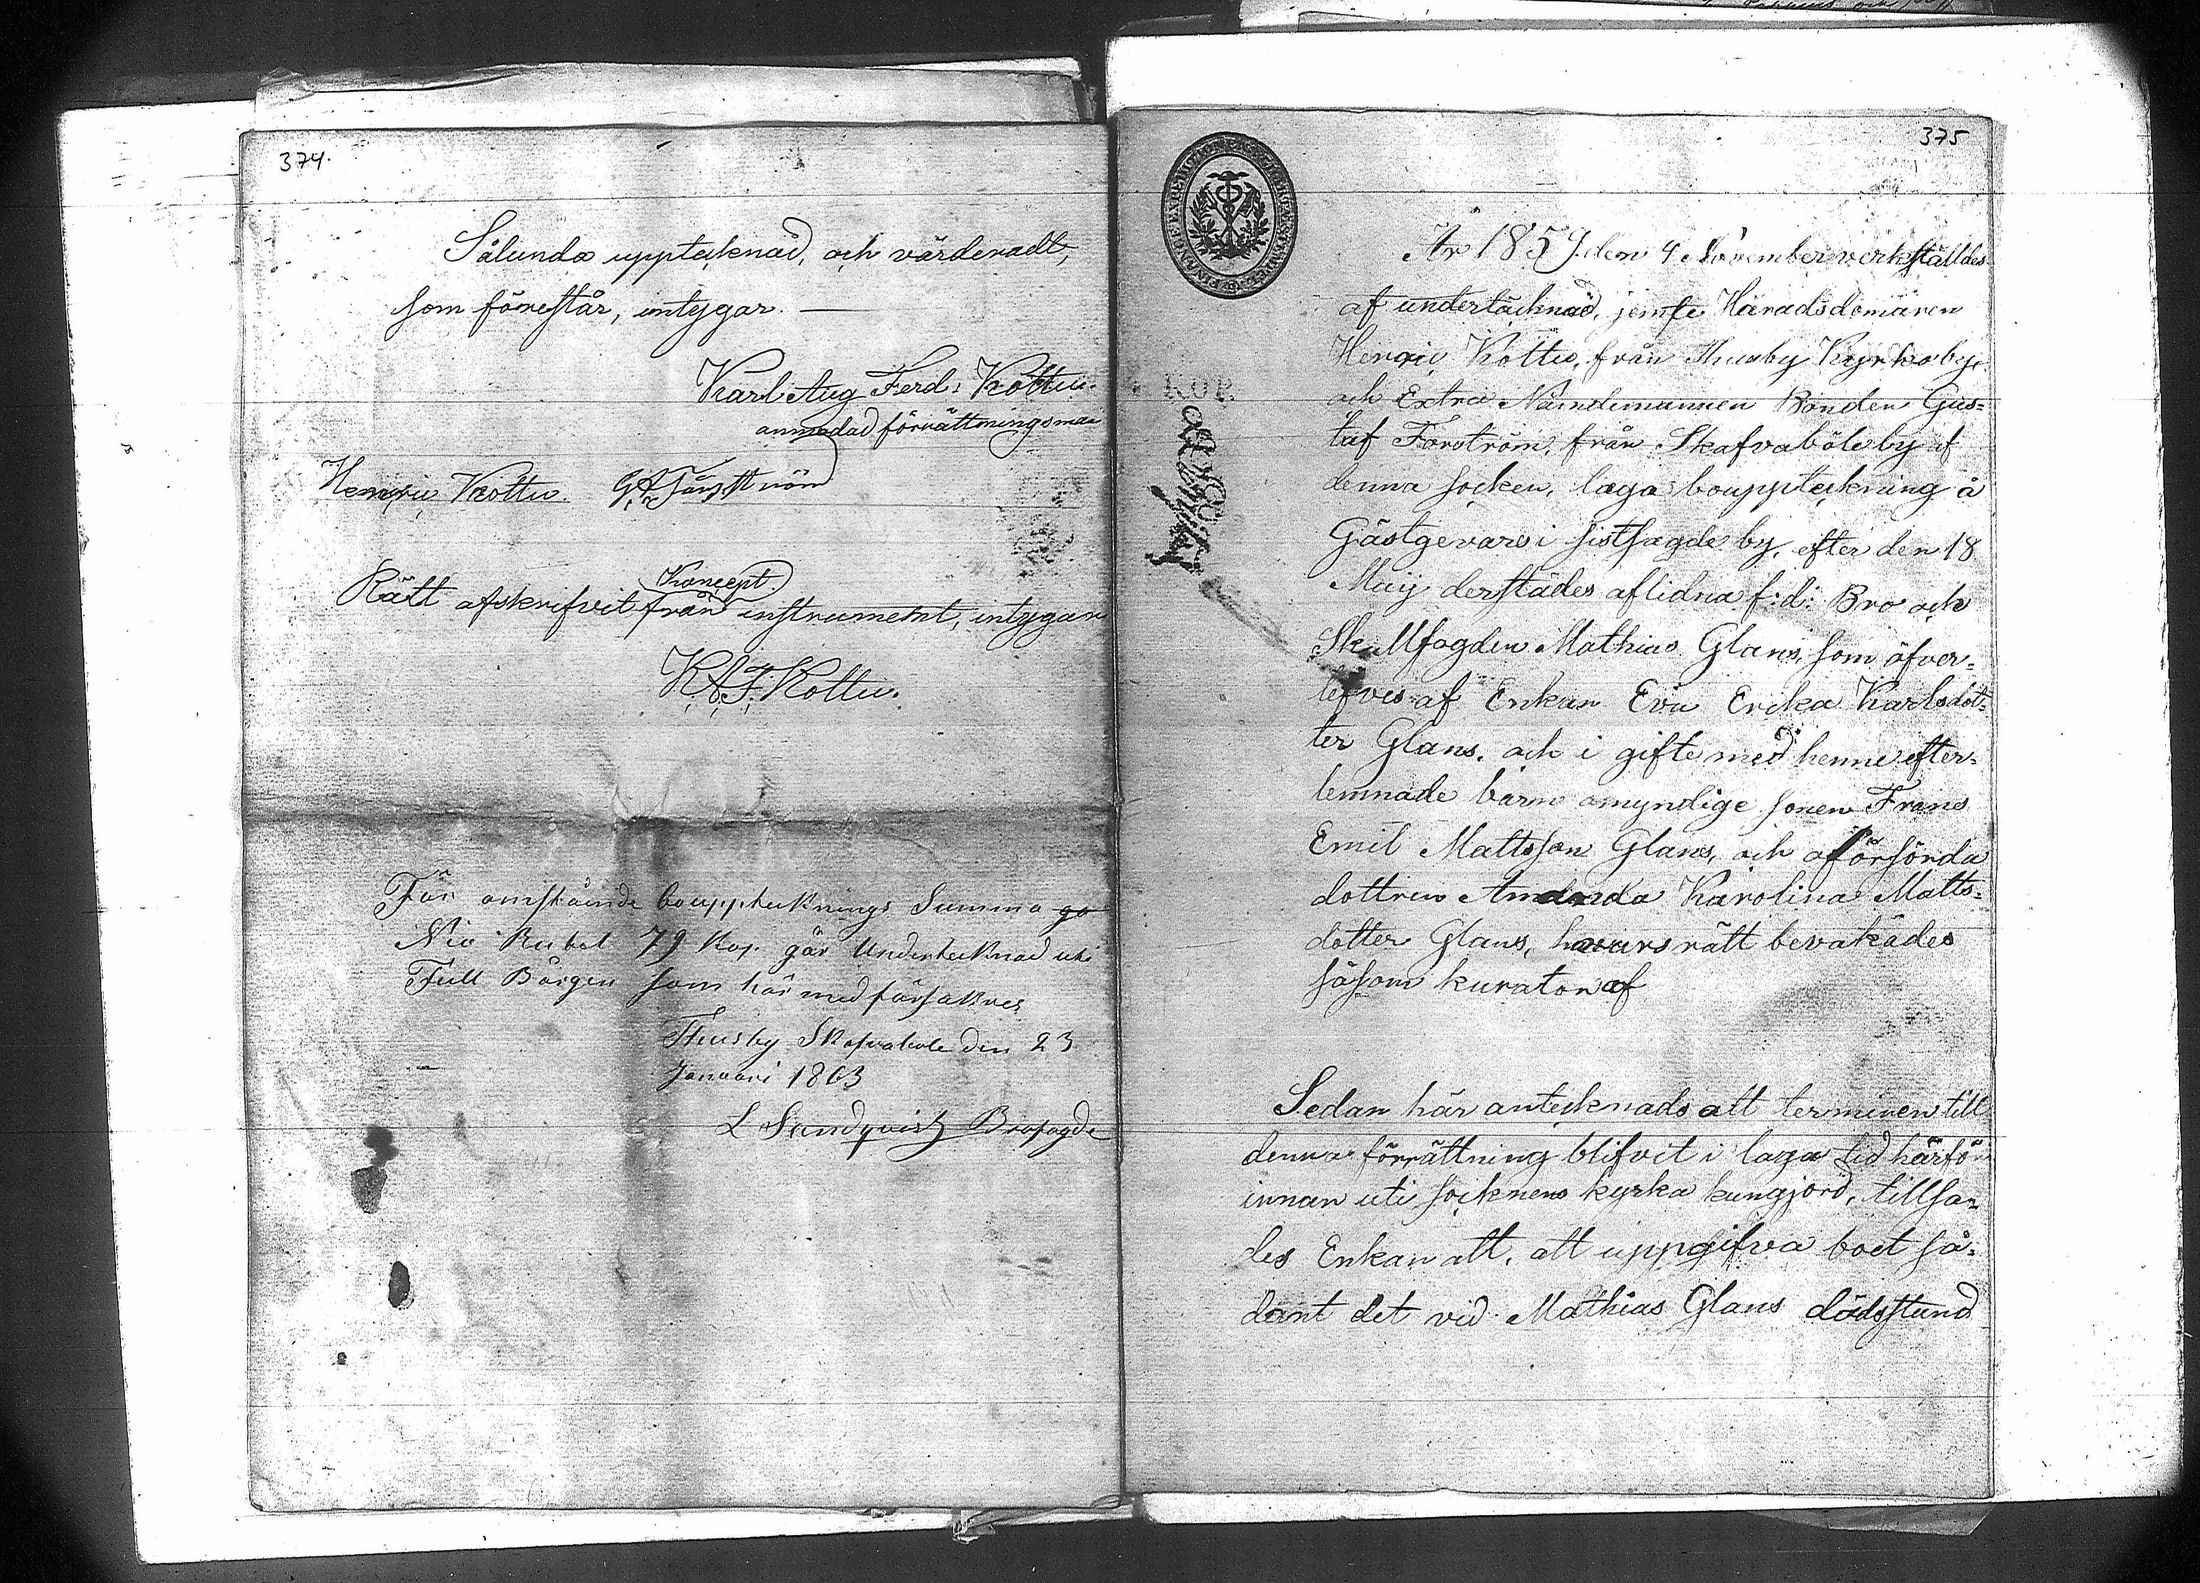 374.
Sålunda upptecknad, och värderadt,
som förestår, intygar.
Karl Aug Ferd: Kottu.
anmodad förrättningsman
Henric Kottu. G A Forsström
Koncept.
Rätt afskrifvit från instrumentet, intygar
K.A.F. Kottu.
För omstående boupptecknings Summa
Nio Rubel 79 Kop. går Undertecknad uti
Full Borgen som här med försäkras
Thusby Skafvaböle den 23
Januari 1863
L Sandqvist Brofogde
375
År 1859 den 4 November verkställdes
af undertäcknad, jemte Häradsdomaren
Henric Kottu, från Thusby Kyrkoby,
och Extra Nämndemannen Bonden Gus-
taf Forström, från Skafvaböle by af
denna socken, laga bouppteckning å
Gästgevars i sistsagde by, efter den 18
Maij derstädes aflidna f:d: Bro och
Skallfogden Mathias Glans, som öfver-
lefves af Enkan Eva Ericka Karlsdot-
ter Glans, och i gifte med henne efter-
lemnade barn omyndige sonen Frans
Emil Mattsson Glans, och oförsörda
dottren Amanda Karolina Matts-
dotter Glans, hvars rätt bevakades
såsom kurator af
Sedan här antecknads att terminen till
denna förrättning blifvit i laga tid härför
innan uti socknens kyrka kungjord, tillsa-
des Enkan att, att uppgifva boet så-
dant det vid Mathias Glans dödsstund